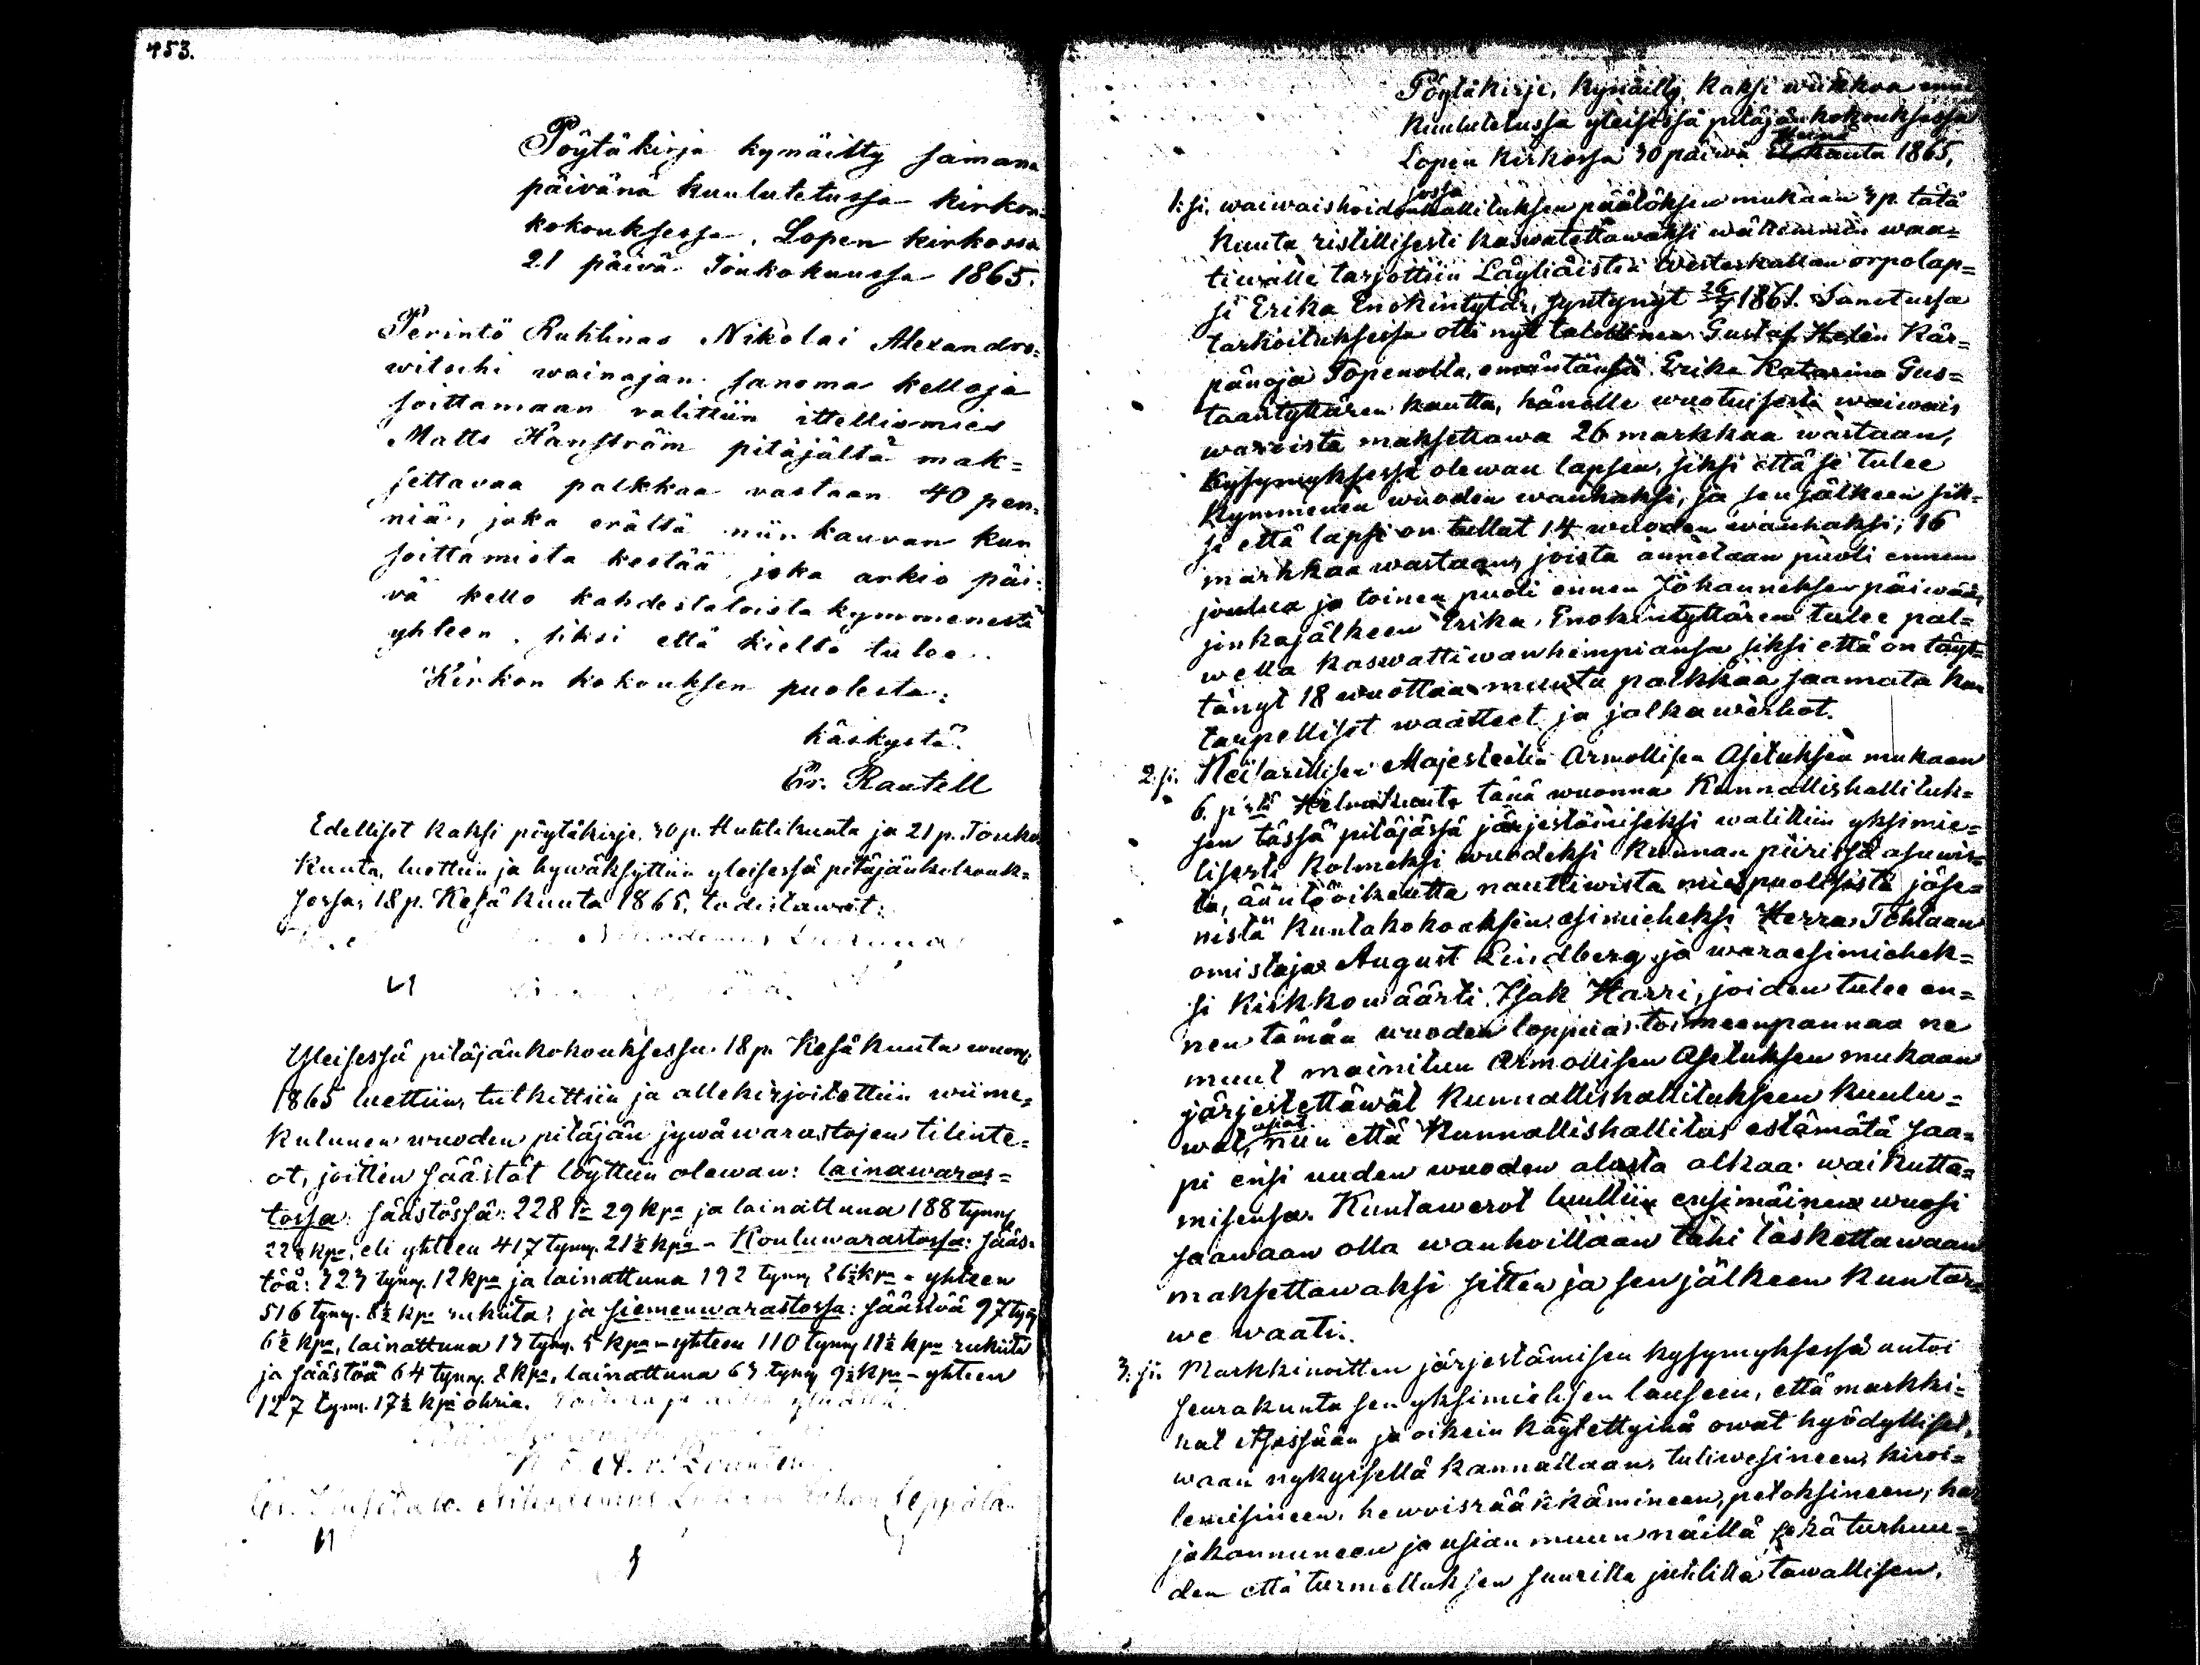 453.
Pöytäkirja kynäilty samana
päivänä kuulutetussa kirkon-
kokouksessa, Lopen kirkossa
21 päivä Toukokuussa 1865.
Perintö Ruhtinas Nikolai Alexandro=
witschi wainajan sanoma kelloja
soittamaan valittiin ittellismies
Matts Hänström pitäjältä mak=
settavaa palkkaa vastaan 40 pen=
niä, joka erältä niin kauvan kun
soittamista kestää joka arkio päi=
vä kello kahdestatoista kymmenestä
yhteen, siksi että kielto tulee.
Kirkon kokouksen puolesta:
käskystä.
Er. Rantell
Edelliset kaksi pöytäkirje. 30 p. Huhtikuuta ja 21 p. Touko
kuuta, luettiin ja hywäksyttiin yleisessä pitäjänkokouk=
sessa, 18 p. Kesäkuuta 1865, todistawat:
Yleisessä pitäjänkokouksessa 18 p. Kesäkuuta wuon.
1865 luettiin, tutkittiin ja allekirjoitettiin wiime=
kuluneen wuoden pitäjän jywäwarastojen tilinte=
ot, joitten säästöt löyttiin olewan: lainawaras=
tossa: säästössä: 228 t= 29 kpa ja lainattuna 188 tynny
22½ kpa, eli yhteen 417 tynny. 21½ kpa - Kouluwarastossa: sääs=
töä: 323 tynny. 12 kpa ja lainattuna 192 tynny 26½ kpa - yhteen
516 tynny. 8½ kpa rukiita; ja siemenwarastossa: säästöä 97 tyn
6½ kpa, lainattuna 13 tynny. 5 kpa - yhteen 110 tynny 11½ kpa rukiita
ja säästöä 64 tynny. 8 kpa, lainattuna 63 tynny 9½ kpa - yhteen
127 tynny. 17½ kpa ohria.
Nikodemus Johan Seppälä
Pöytäkirje, kynäilty kaksi wiikkoa
kuulutetussa yleisessä pitäjänkokouksessa
Heinä
Lopen kirkossa 30 päiwä Elokuuta 1865,
jossa
1:si. waiwaishoidonhallituksen päätöksen mukaan 3 p. tätä
kuuta ristillisesti kaswatettawaksi wähimmin waa=
tiwalle tarjottiin Läyliäisten Westerkallan orpolap=
si Erika Enokintytär, syntynyt 1861. Sanotussa
tarkoituksessa otti nyt talollinen Gustaf Helen Kär=
pänoja Topenolta, emäntänsä Erika Katarina Gus=
taantyttären kautta, hänelle wuotuisesti waiwais
waroista maksettawa 26 markkaa wastaan,
kysymyksessä olewan lapsen, siksi että se tulee
Kymmenen wuoden wanhaksi, ja sen jälkeen sik=
si että lapsi on tullut 14 wuoden wanhaksi; 16
markkaa wastaan, joista annetaan puoli ennen
joulua ja toinen puoli ennen Johanneksen päiwää,
jonkajälkeen Erika Enokintyttären tulee pal=
wella kaswattiwanhempiansa siksi että on täyt=
tänyt 18 wuottaa muuta palkkaa saamata kun
tarpelliset waatteet ja jalkawerhot.
2:si. Keisarillisen Majesteetin Armollisen Asetuksen mukaan
6. p:stä Helmikuuta tänä wuonna Kunnallishallituk=
sen tässä pitäjässä järjestämiseksi walittiin yksimie=
lisesti kolmeksi wuodeksi kunnan piirissä asuwis=
ta, ääntöoikeutta nauttiwista miespuolisista jäse=
nistä Kuntakokouksen esimieheksi Herra Tehtaan
omistaja August Lindberg ja waraesimiehek=
si Kirkkowäärti Isak Harri, joiden tulee en=
nen tämän wuoden loppua toimeenpannaa ne
muut mainitun Armollisen Asetuksen mukaan
järjestettäwät Kunnallishallitukseen kuulu=
asiat
wat, niin että Kunnallishallitus estämätä saa=
pi ensi uuden wuoden alusta alkaa waikutta=
misensa. Kuntawerot luultiin ensimäinen wuosi
saawaan olla wanhoillaan tahi laskettawaan
maksettawaksi sitten ja sen jälkeen kun tar=
we waati.
3:si. Markkinoitten järjestämisen kysymyksessä antoi
seurakunta sen yksimielisen lauseen, että markki=
nat itsessään ja oikein käytettyinä owat hyödylliset,
waan nykyisellä kannallaan tuliwesineen, kiroi=
lemisineen, hewoisrääkkämineen, petoksineen, hau
jakonnuneen ja usian muun näillä sekä turhuu=
den että turmelluksen suurilla juhlilla tawallisen.